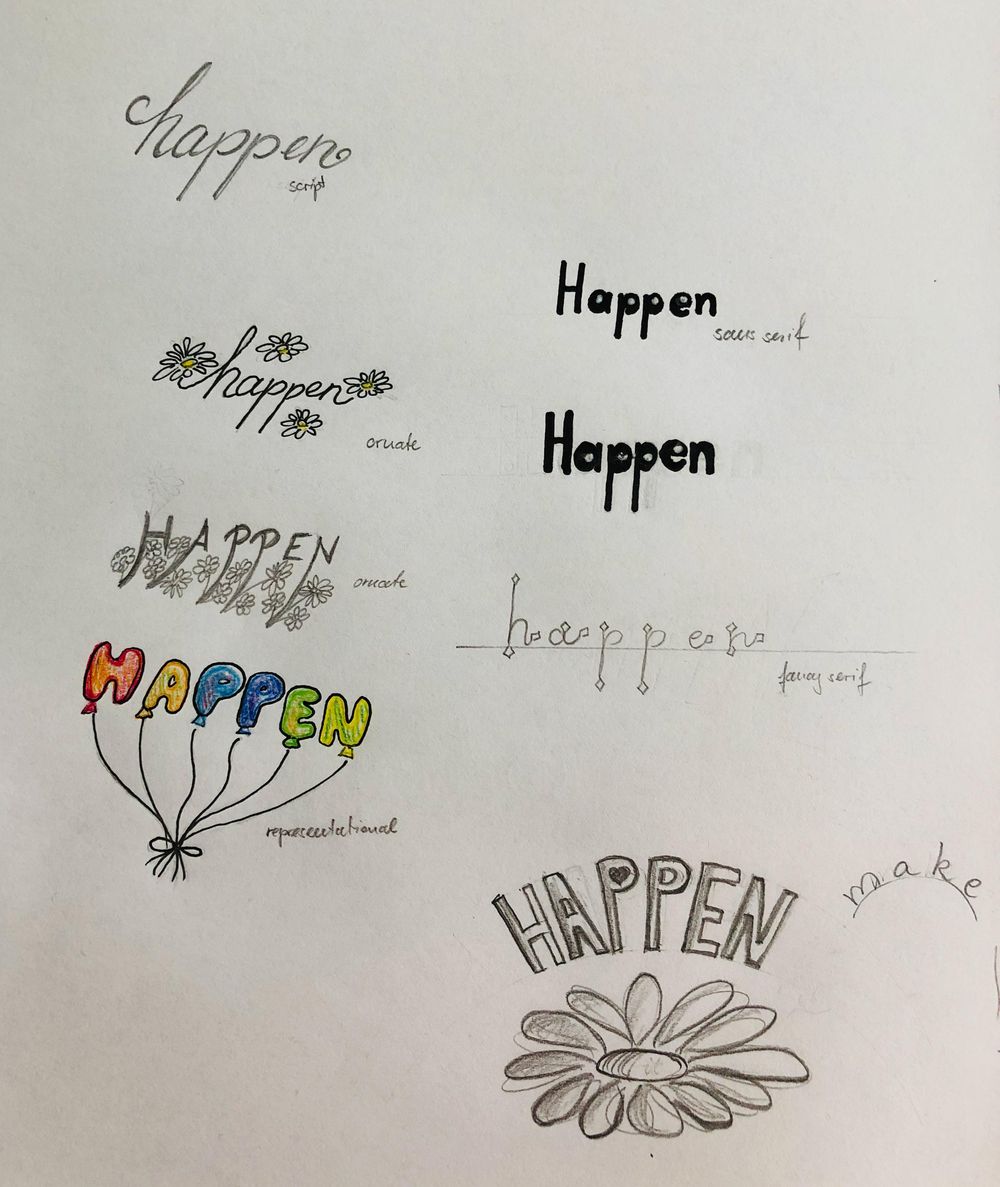 happen
script
Happen
sans serif
happen
ornate
Happen
HAPPEN
ornate
happen
fancy serif
HAPPEN
representational
HAPPEN
make